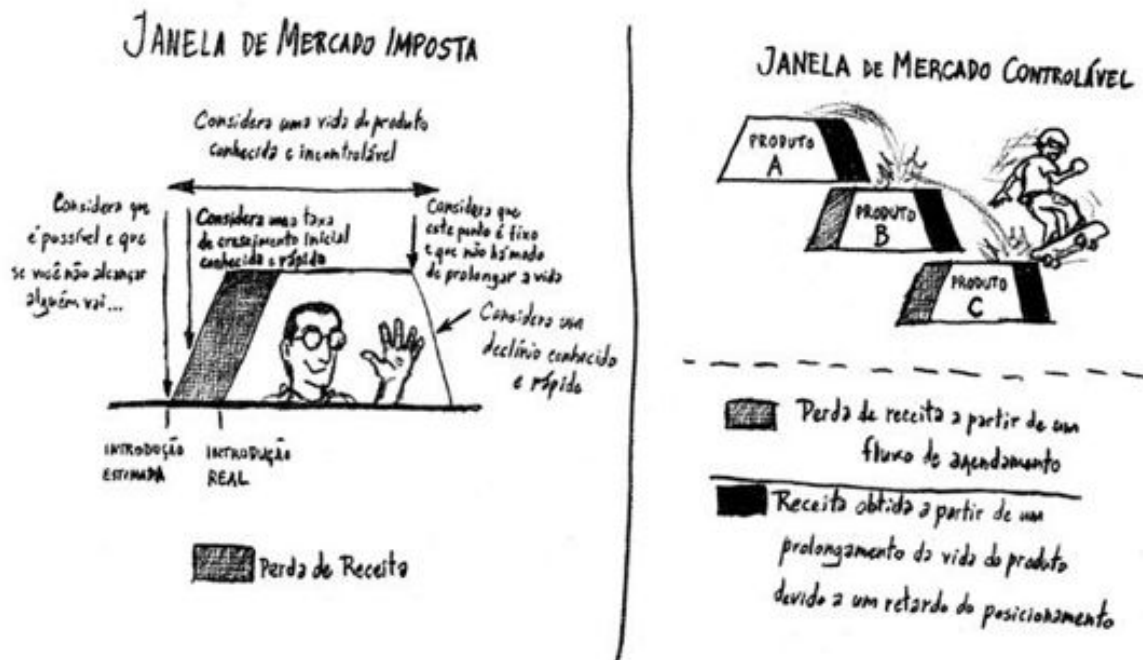 JANELA DE MERCADO IMPOSTA
Considera uma vida do produto
conhecida e incontrolável
Considera que
é possível e que
se você não alcançar
alguém vai...
Considera uma taxa
de crescimento inicial
conhecida e rápida
Considera que
este ponto é fixo
e que não há modo
de prolongar a vida
Considera um
declínio conhecido
e rápido
INTRODUÇÃO
ESTIMADA
INTRODUÇÃO
REAL
Perda de Receita
JANELA DE MERCADO CONTROLÁVEL
PRODUTO
A
PRODUTO
B
PRODUTO
C
Perda de receita a partir de um
fluxo de agendamento
Receita obtida a partir de um
prolongamento da vida do produto
devido a um retardo do posicionamento